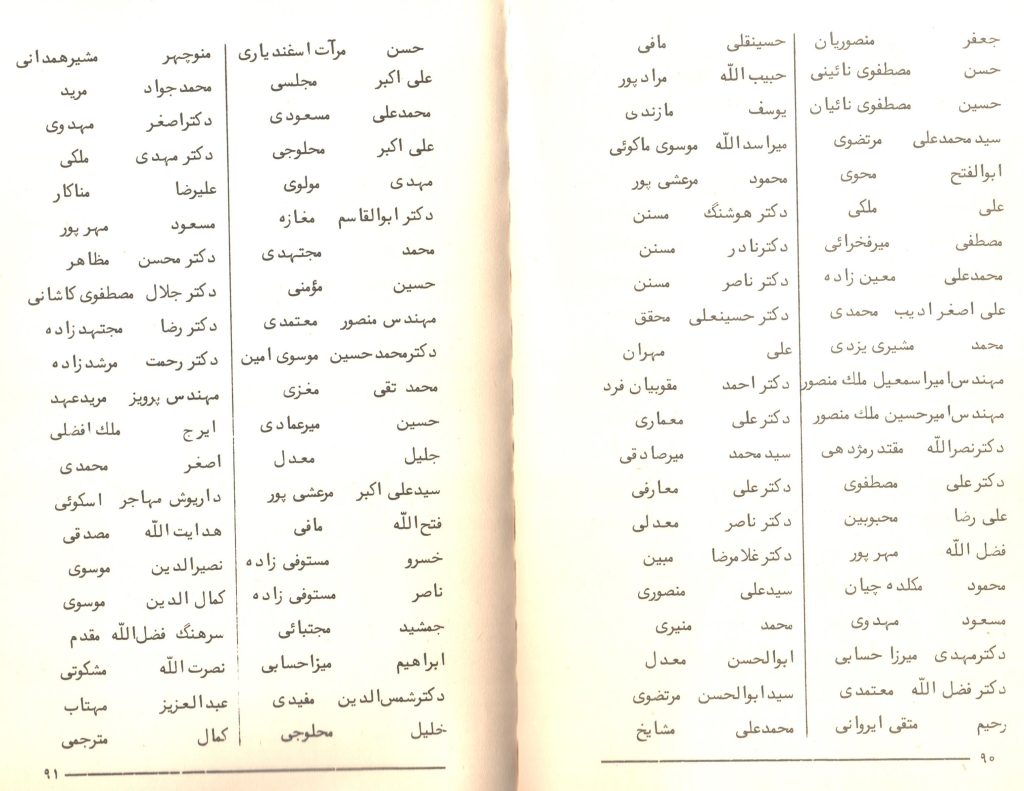 جعفر منصوریان
حسن مصطفوی نائینی
حسین مصطفوی نائیان
سید محمدعلی مرتضوی
ابوالفتح محوی
علی ملکی
مصطفی میرفخرائی
محمدعلی معین زاده
علی اصغر ادیب محمدی
محمد مشیری یزدی
مهندس امیراسمعیل ملك منصور
مهندس امیرحسین ملك منصور
دکترنصرالله مقتدرمژدهی
دکترعلی مصطفوی
علی رضا محبوبین
فضل الله مهرپور
محمود مکلده چیان
مسعود مهدوی
دکترمهدی میرزا حسابی
دکتر فضل الله معتمدی
رحیم متقی ایروانی
حسینقلی مافی
حبیب الله مرادپور
یوسف مازندی
میراسدالله موسوی ماکوئی
محمود مرعشی پور
دکتر هوشنگ مسنن
دکترنادر مسنن
دکتر ناصر مسنن
دکتر حسینعلی محقق
علی مهران
دکتر احمد مقوبیان فرد
دکترعلی معماری
سید محمد میرصادقی
دکترعلی معارفی
دکتر ناصر معدلی
دکترغلامرضا مبین
سیدعلی منصوری
محمد منیری
ابوالحسن معدل
سیدابوالحسن مرتضوی
محمدعلی مشایخ
۹۰
حسن مرآت اسفندیاری
علی اکبر مجلسی
محمدعلی مسعودی
علی اکبر محلوجی
مهدی مولوی
دکتر ابوالقاسم مغازه
محمد مجتهدی
حسین مؤمنی
مهندس منصور معتمدی
دکترمحمدحسین موسوی امین
محمد تقی مغزی
حسین میرعمادی
جلیل معدل
سیدعلی اکبر مرعشی پور
فتح‌الله مافی
خسرو مستوفی زاده
ناصر مستوفی زاده
جمشید مجتبائی
ابراهیم میزاحسابی
دکترشمس‌الدین مفیدی
خلیل محلوجی
منوچهر مشیرهمدانی
محمدجواد مرید
دکتراصغر مهدوی
دکتر مهدی ملکی
علیرضا مناکار
مسعود مهرپور
دکتر محسن مظاهر
دکتر جلال مصطفوی کاشانی
دکتر رضا مجتهدزاده
دکتر رحمت مرشدزاده
مهندس پرویز مریدعهد
ایرج ملك افضلی
اصغر محمدی
داریوش مهاجر اسکوئی
هدایت الله مصدقی
نصیرالدین موسوی
کمال الدین موسوی
سرهنگ فضل‌الله مقدم
نصرت الله مشکوتی
عبدالعزیز مهتاب
کمال مترجمی
۹۱